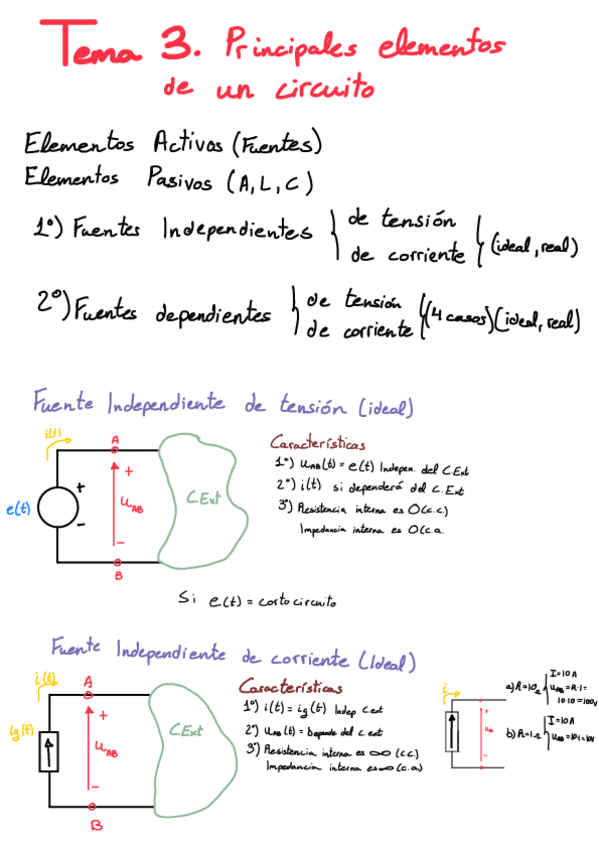 Tema 3. Principales elementos
de un circuito
Elementos Activos (Fuentes)
Elementos Pasivos (A, L, C)
1º) Fuentes Independientes } de tensión
de corriente } (ideal, real)
2º) Fuentes dependientes } de tensión
de corriente } (4 casos) (ideal, real)
Fuente Independiente de tensión (ideal)
i(t)
A
+
+
e(t)
U_AB
C.Ext
-
-
B
Características
1º) U_AB(t) = e(t) Indepen. del C.Ext
2º) i(t) si dependerá del C.Ext
3º) Resistencia interna es 0 (c.c)
Impedancia interna es 0 (c.a.
Si e(t) = cortocircuito
Fuente Independiente de corriente (Ideal)
i(t)
A
+
ig(t)
U_AB
C.Ext
-
B
Características
1º) i(t) = ig(t) Indep C.ext
2º) U_AB(t) = Depende del c.ext
3º) Resistencia interna es ∞ (c.c.)
Impedancia interna es ∞ (c.a)
i
+
U_AB
-
a) R=10Ω { I=10A
U_AB = R·I =
10·10 = 100V
b) R=1Ω { I=10A
U_AB = 10·1 = 10V